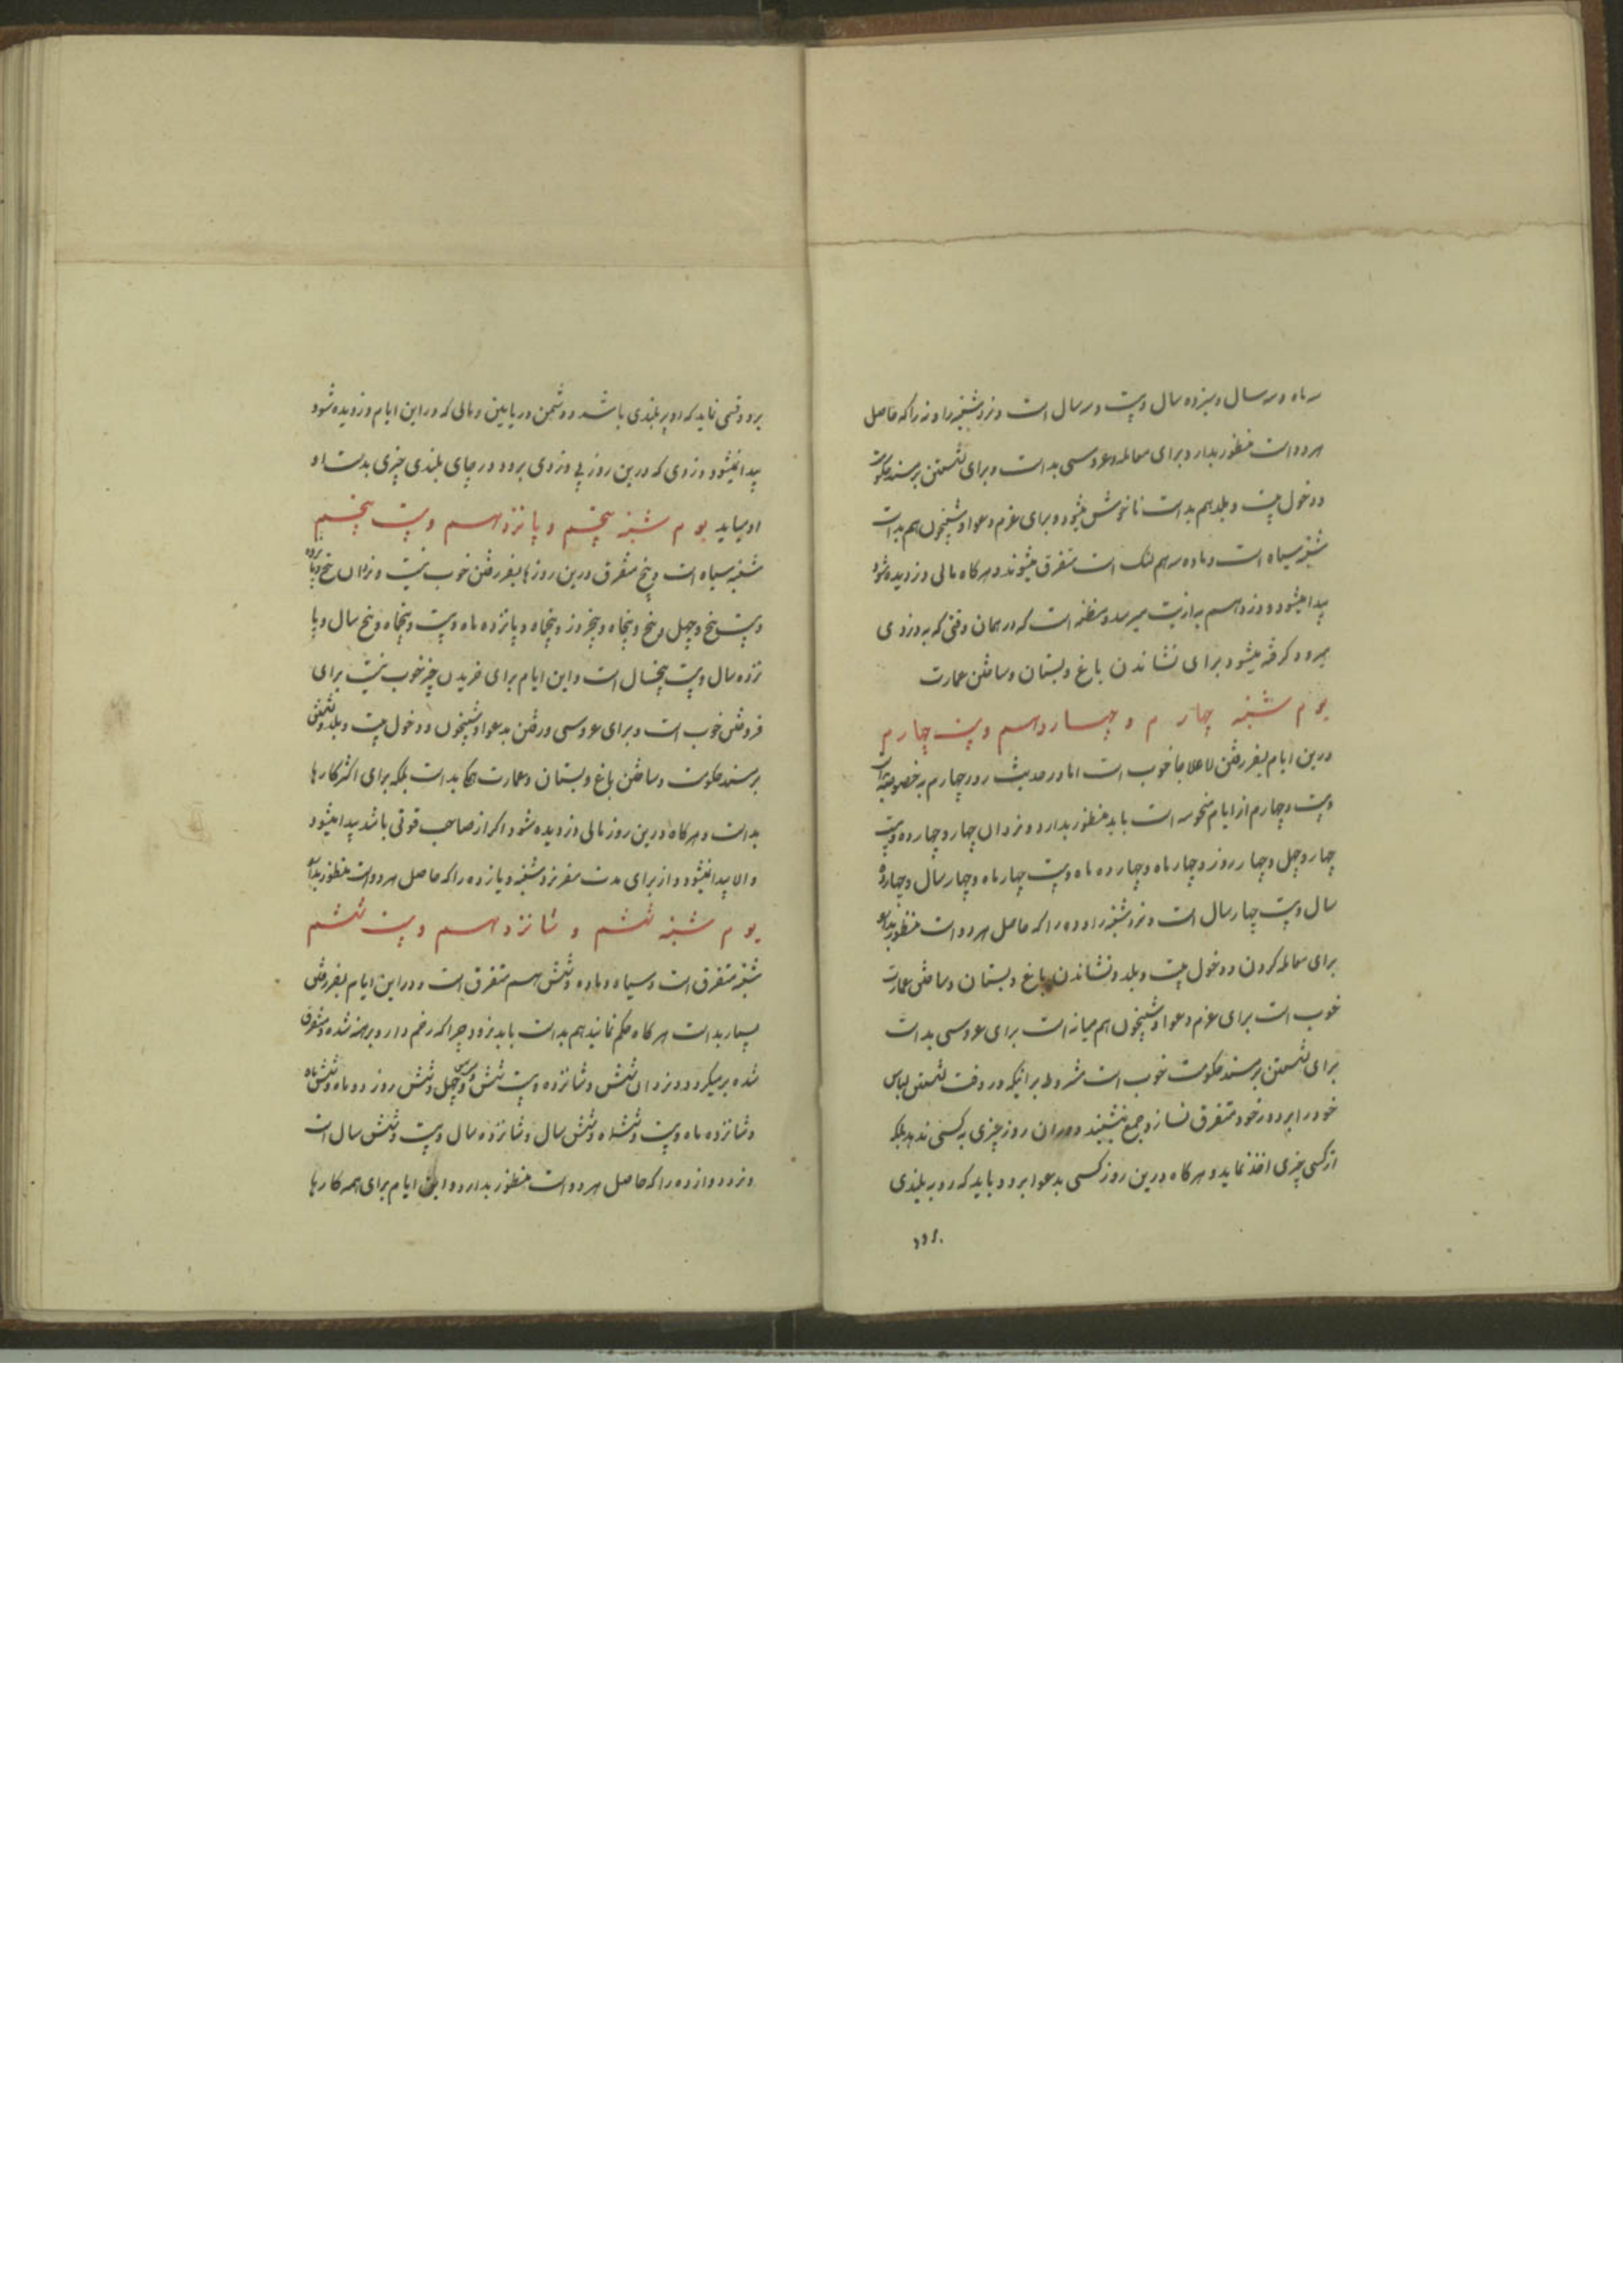 سه ماه و سه سال و سیزده سال و بیست و سه سال است و نزد شنبه را و نه را که حاصل
هر دو است منظور بدارد و برای معامله و عروسی بد است و برای نشستن بر مسند حکومت
و دخول بیت و بلد هم بد است ناخوش میشود و برای عزم دعوا و شبخون هم بد است
شنبه سیاه است و ماده سه هم لنگ است متفرق میشوند و هر کاه مالی دزدیده شود
پیدا میشود و دزد هم به اذیت میرسد و مظنه است که در همان وقتی که به دزدی
میرود کرفته میشود برای نشاندن باغ و بستان و ساختن عمارت
یوم شنبه چهارم و چهاردهم و بیست چهارم
درین ایام بسفر رفتن لاعلاجا خوب است اما در حدیث روز چهارم به خصوصه
و بیست و چهارم از ایام منحوسه است باید منظور بدارد و نزد آن چهار و چهارده و بیست
چهار و چهل و چهار روز و چهار ماه و چهارده ماه و بیست چهار ماه و چهار سال و چهارده
سال و بیست چهار سال است و نزد شنبه را و ده را که حاصل هر دو است منظور بدارد
برای معامله کردن و دخول بیت و بلد و نشاندن باغ و بستان و ساختن عمارت
خوب است برای عزم دعوا و شبخون هم میانه است برای عروسی بد است
برای نشستن بر مسند حکومت خوب است مشروط بر اینکه در وقت نشستن لباس
خود را بر دور خود متفرق نسازد جمع بنشیند و در آن روز چیزی به کسی ندهد بلکه
از کسی چیزی اخذ نماید و هر کاه درین روز کسی بدعوا برود باید که رو به بلندی
برود
برود و قسمی نماید که او بر بلندی باشد و دشمن در پایین و مالی که در این ایام دزدیده شود
پیدا نمیشود دزدی که درین روز پی دزدی برود در جای بلندی چیزی بدست او
او بیاید یوم شنبه پنجم و پانزدهم و بیست پنجم
شنبه سیاه است و پنج متفرق درین روزها بسفر رفتن خوب نیست و نزد آن پنج و پانزده
و بیست پنج و چهل و پنج و پنجاه و پنج روز و پنجاه و پانزده ماه و بیست و پنجاه و پنج سال و پا
نزده سال و بیست پنجسال است و این ایام برای خریدن چیز خوب نیست برای
فروختن خوب است و برای عروسی و رفتن بدعوا و شبخون و دخول بیت و بلد و نشستن
بر مسند حکومت و ساختن باغ و بستان و عمارت بد است بلکه برای اکثر کارها
بد است و هر کاه درین روز مالی دزدیده شود اکر از صاحب قوتی باشد پیدا میشود
و الا پیدا نمیشود و از برای مدت سفر نزد شنبه و یازده را که حاصل هر دو است منظور بدارد
یوم شنبه ششم و شانزدهم و بیست ششم
شنبه متفرق است و سیاه و ماده و شش هم متفرق است و در این ایام بسفر رفتن
بسیار بد است هر کاه حکم نمایند هم بد است باید نرود چرا که زخم دار و برهنه شده و متفرق
شده بر میکردد و نزد آن شش و شانزده و بیست شش و سی و چهل و شش روز و دو ماه و شش ماه
و شانزده ماه و بیست و ششماه و شش سال و شانزده سال و بیست و شش سال است
و نزد دوازده را که حاصل هر دو است منظور بدارد و این ایام برای همه کارها